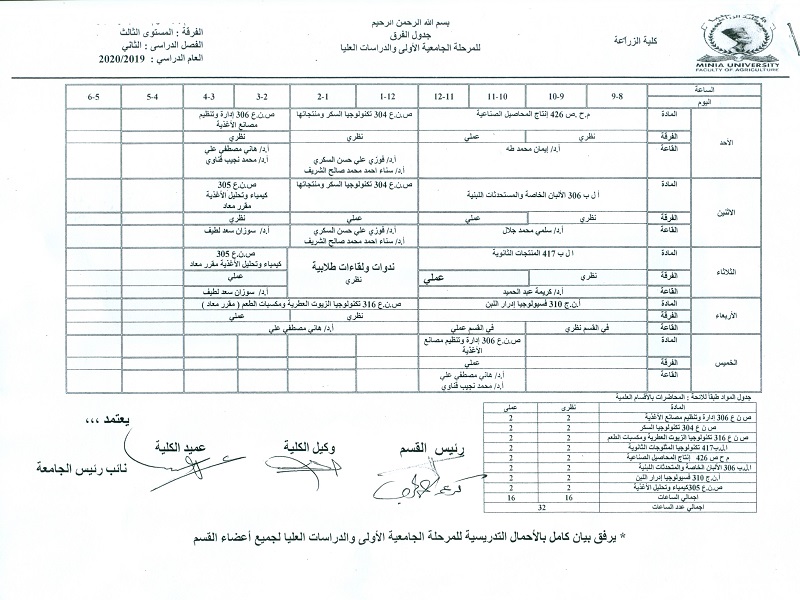 بسم الله الرحمن الرحيم
جدول الفرق
للمرحلة الجامعية الأولى والدراسات العليا
كلية الزراعة
MINIA UNIVERSITY
FACULTY OF AGRICULTURE
الفرقة : المستوى الثالث
الفصل الدراسى : الثاني
العام الدراسي : 2020/2019
الساعة
اليوم
9-8 10-9 11-10 12-11 1-12 2-1 3-2 4-3 5-4 6-5
الأحد
المادة م.ح.ص 426 إنتاج المحاصيل الصناعية ص.ن.ع 304 تكنولوجيا السكر ومنتجاتها ص.ن.ع 306 إدارة وتنظيم
مصانع الأغذية
الفرقة نظري عملي نظري نظري
القاعة أ.د/ إيمان محمد طه أ.د/ فوزي علي حسن السكري أ.د/ هاني مصطفي علي
أ.د/ سناء احمد محمد صالح الشريف أ.د/ محمد نجيب قناوي
الأثنين
المادة أ ل ب 306 الألبان الخاصة والمستحدثات اللبنية ص.ن.ع 304 تكنولوجيا السكر ومنتجاتها ص.ن.ع 305
كيمياء وتحليل الأغذية
مقرر معاد
الفرقة نظري عملي عملي نظري
القاعة أ.د/ سلمي محمد جلال أ.د/ فوزي علي حسن السكري أ.د/ سوزان سعد لطيف
أ.د/ سناء احمد محمد صالح الشريف
الثلاثاء
المادة ا ل ب 417 المنتجات الثانوية ندوات ولقاءات طلابية ص.ن.ع 305
كيمياء وتحليل الأغذية مقرر معاد
الفرقة نظري عملي نظري عملي
القاعة أ.د/ كريمة عبد الحميد أ.د/ سوزان سعد لطيف
الأربعاء
المادة أ.ن.ج 310 فسيولوجيا إدرار اللبن ص.ن.ع 316 تكنولوجيا الزيوت العطرية ومكسبات الطعم ( مقرر معاد )
الفرقة نظري عملي
القاعة في القسم نظري في القسم عملي أ.د/ هاني مصطفي علي
الخميس
المادة ص.ن.ع 306 إدارة وتنظيم مصانع
الأغذية
الفرقة عملي
القاعة أ.د/ هاني مصطفي علي
أ.د/ محمد نجيب قناوي
جدول المواد طبقا للائحة : المحاضرات بالأقسام العلمية
المادة نظرى عملى
ص ن ع 306 إدارة وتنظيم مصانع الأغذية 2 2
ص ن ع 304 تكنولوجيا السكر 2 2
ص ن ع 316 تكنولوجيا الزيوت العطرية ومكسبات الطعم 2 2
ا.ل.ب417 تكنولوجيا المنتوجات الثانوية 2 2
م ح ص 426 إنتاج المحاصيل الصناعية 2 2
ا.ل.ب 306 الألبان الخاصة والمتحدثات اللبنية 2 2
أ.ن.ج 310 فسيولوجيا إدرار اللبن 2 2
ص.ن.ع 305كيمياء وتحليل الأغذية 2 2
اجمالي الساعات 16 16
اجمالي عدد الساعات 32
رئيس القسم
وكيل الكلية
عميد الكلية
يعتمد ،،،
نائب رئيس الجامعة
* يرفق بيان كامل بالأحمال التدريسية للمرحلة الجامعية الأولى والدراسات العليا لجميع أعضاء القسم